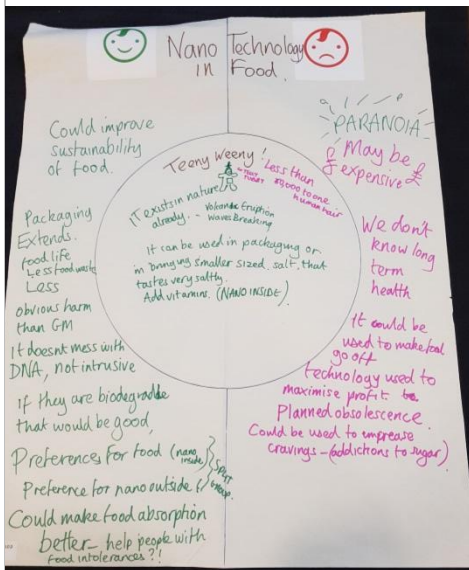 Nano Technology
in Food.
Could improve
sustainability
of food.
Packaging
Extends.
food life
Less food waste
Less
obvious harm
than GM
It doesnt mess with
DNA, not intrusive
if they are biodegradable
that would be good,
Preferences for food (nano inside)
Preference for nano outside
SPLIT
GROUP.
Could make food absorption
better - help people with
food intolerances?!
Teeny Weeny!
Less than
to one
human hair
IT exists in nature
already. - Volcanic Eruption
Waves Breaking
It can be used in packaging or
in bringing smaller sized, salt, that
tastes very salty.
Add vitamins. (NANO INSIDE)
PARANOIA
£ May be £
expensive
We don't
know long
term
health
It could be
used to make food
go off
technology used to
maximise profit
Planned obsolescence.
Could be used to emprease
cravings - (addictions to sugar)